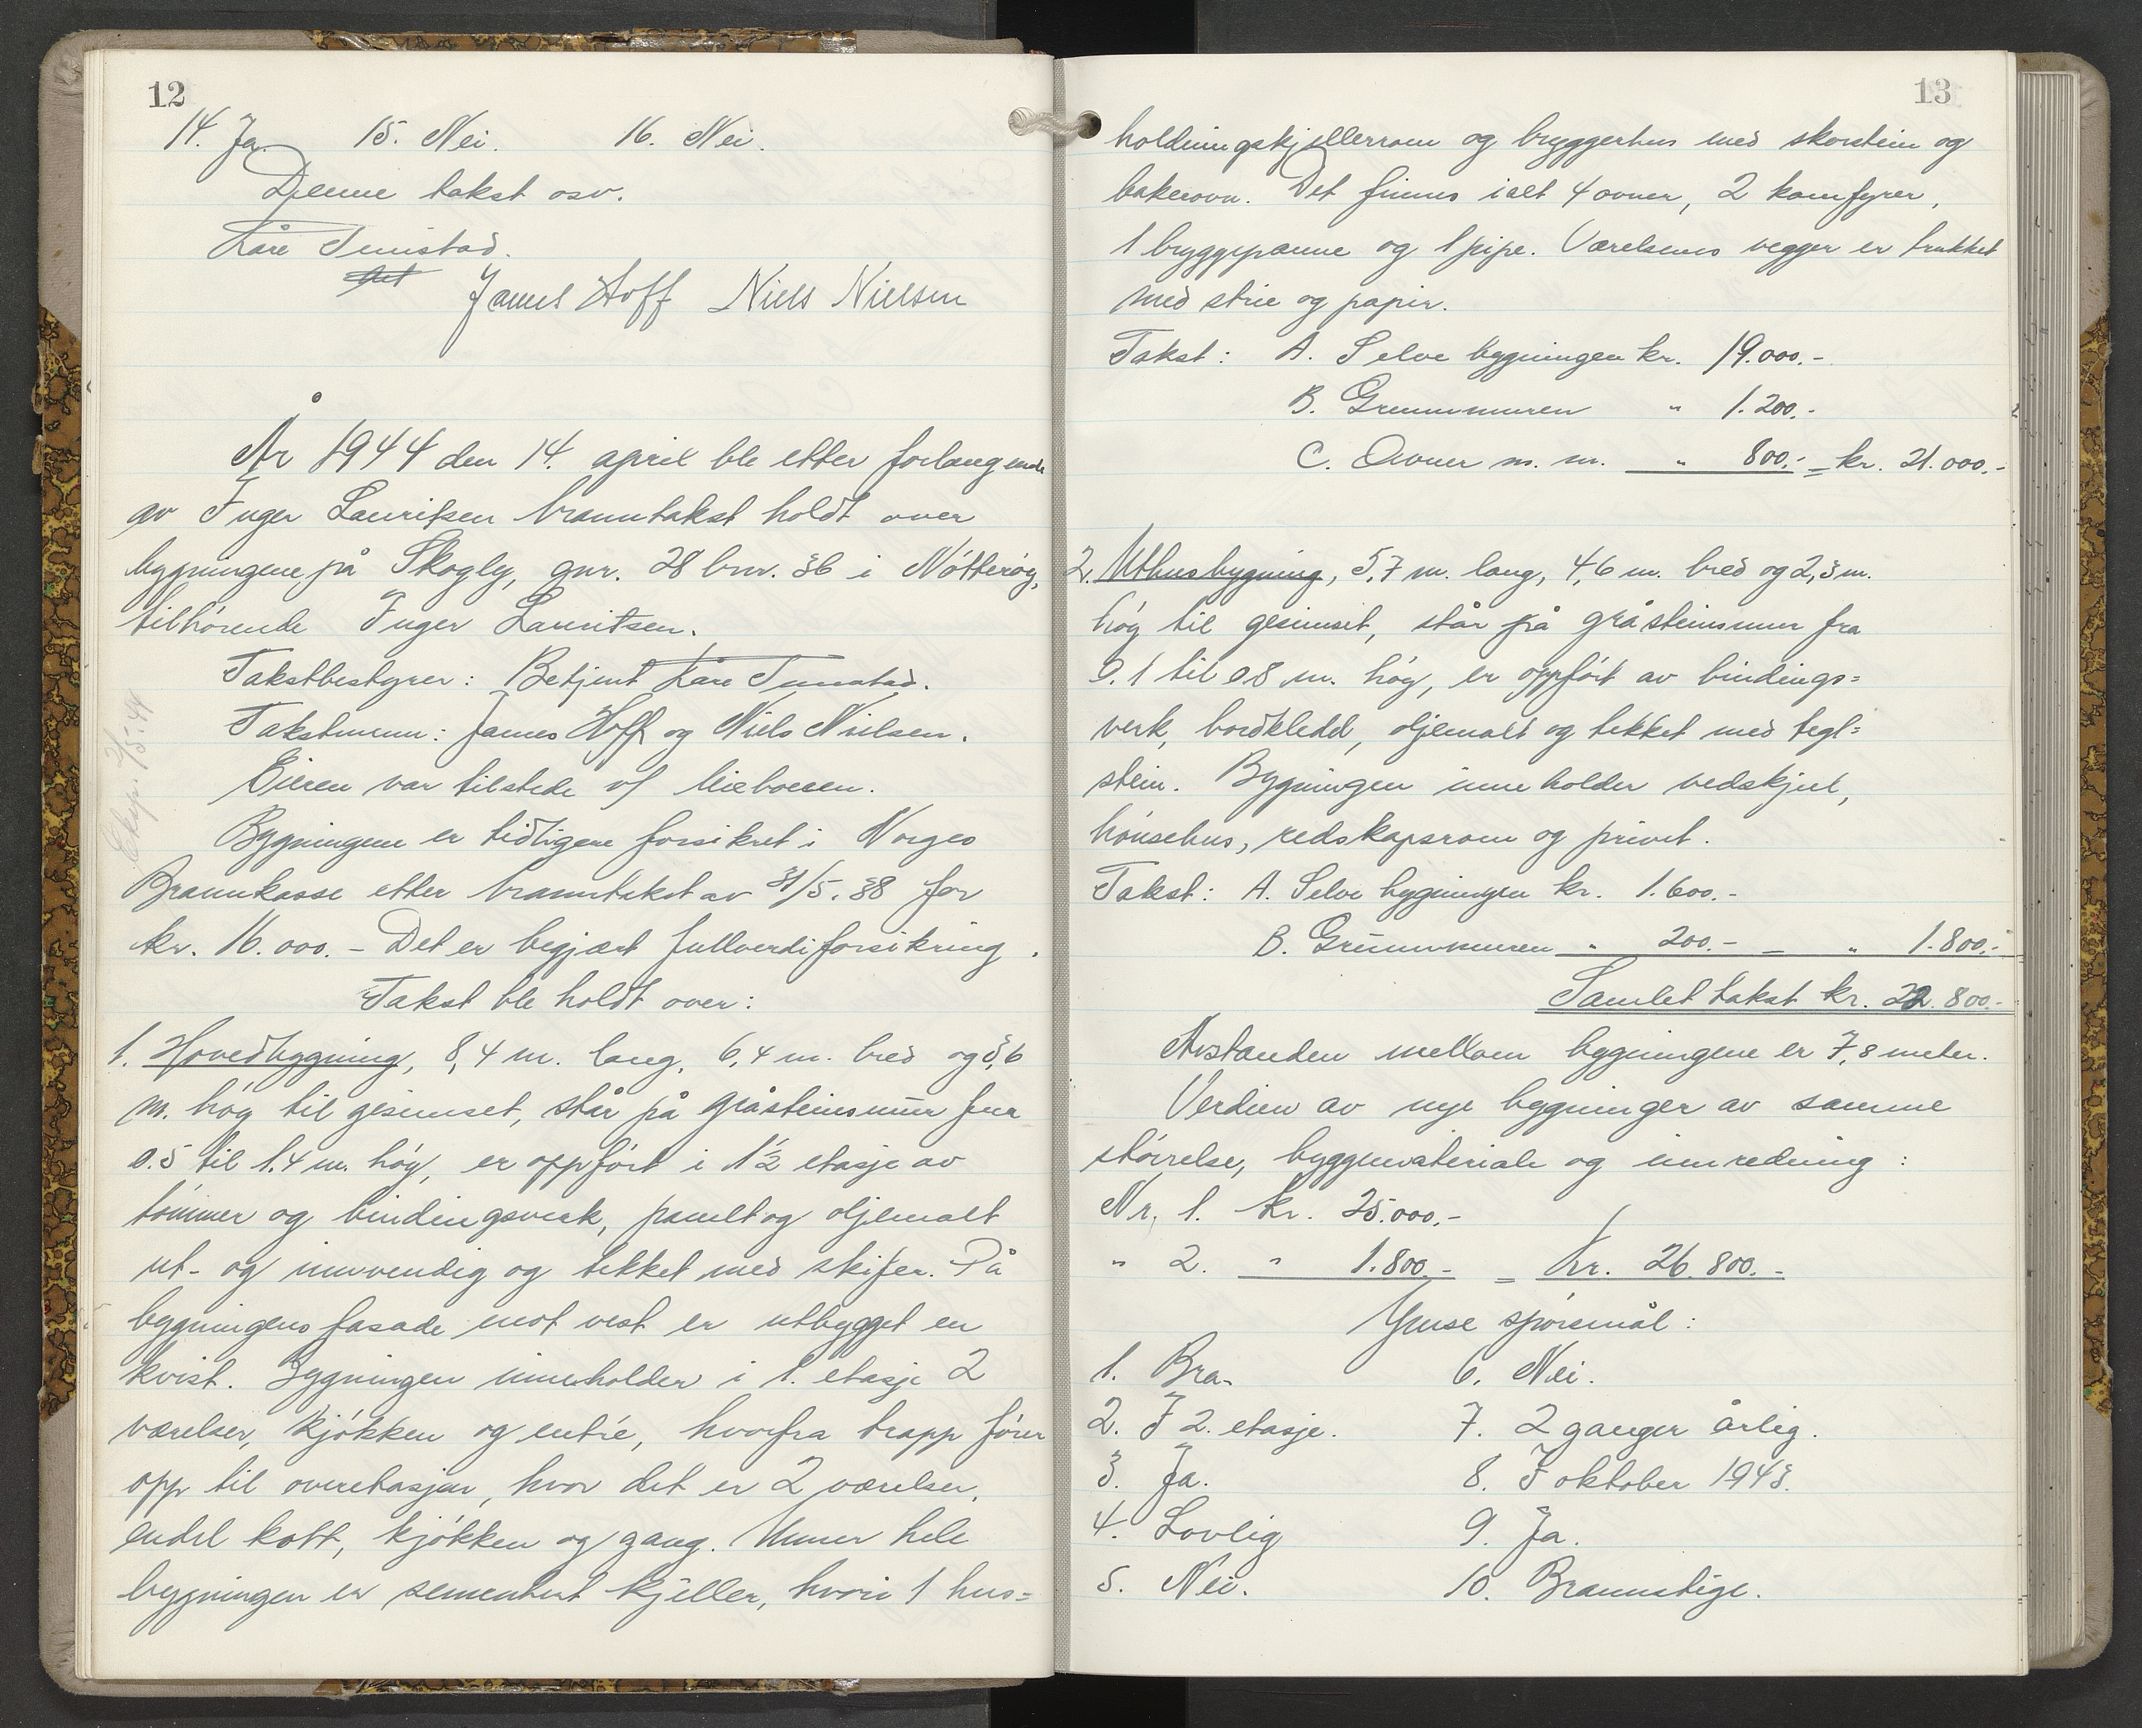 12
14. Ja. 15. Nei. 16. Nei.
Denne takst osv.
Kåre Tunstad.
James Hoff Niels Nielsen
År 1944 den 14. april ble etter forlangende
av Inger Lauritsen branntakst holdt over
bygningene på Skogly, gnr. 28 bnr. 36 i Nøtterøy,
tilhørende Inger Lauritsen.
Takstbestyrer: Betjent Kåre Tunstad.
Takstmenn: James Hoff og Niels Nielsen.
Eieren var tilstede v/ leieboeren.
Bygningene er tidligere forsikret i Norges
Brannkasse etter branntakst av 31/5.38 for
kr. 16.000.- Det er begjært fullverdiforsikring.
Takst ble holdt over:
1. Hovedbygning, 8,4 m. lang, 6,4 m. bred og 3,6
m. høy til gesimset, står på gråsteinsmur fra
0.5 til 1.4 m. høy, er oppført i 1½ etasje av
tømmer og bindingsverk, panelt og oljemalt
ut- og innvendig og tekket med skifer. På
bygningens fasade mot vest er utbygget en
kvist. Bygningen inneholder i 1. etasje 2
værelser, kjøkken og entré, hvorfra trapp fører
opp til overetasjen, hvor det er 2 værelser,
endel kott, kjøkken og gang. Unner hele
bygningen er sementert kjeller, hvori 1 hus=
Eksp. 7/5-44
13
holdningskjellerrom og bryggerhus med skorstein og
bakerovn. Det finnes ialt 4 ovner, 2 komfyrer,
1 bryggepanne og 1 pipe. Værelsenes vegger er trukket
med strie og papir.
Takst: A. Selve bygningen kr. 19.000.-
B. Grunnmuren " 1.200.-
C. Ovner m. m. " 800.- = kr. 21.000.-
2. Uthusbygning, 5,7 m. lang, 4,6 m. bred og 2,3 m.
høy til gesimset, står på gråsteinsmur fra
0.1 til 0.8 m. høy, er oppført av bindings=
verk, bordkledd, oljemalt og tekket med tegl=
stein. Bygningen inneholder vedskjul,
hønsehus, redskapsrom og privet.
Takst: A. Selve bygningen kr. 1.600.-
B. Grunnmuren " 200.- = " 1.800.-
Samlet takst kr. 22.800.-
Avstanden mellom bygningene er 7,8 meter.
Verdien av nye bygninger av samme
størrelse, byggemateriale og innredning:
Nr. 1. kr. 25.000.-
" 2. " 1.800.- = Kr. 26.800.-
Ymse spørsmål:
1. Bra. 6. Nei.
2. I 2. etasje. 7. 2 ganger årlig.
3. Ja. 8. I oktober 1943.
4. Lovlig 9. Ja.
5. Nei. 10. Brannstige.